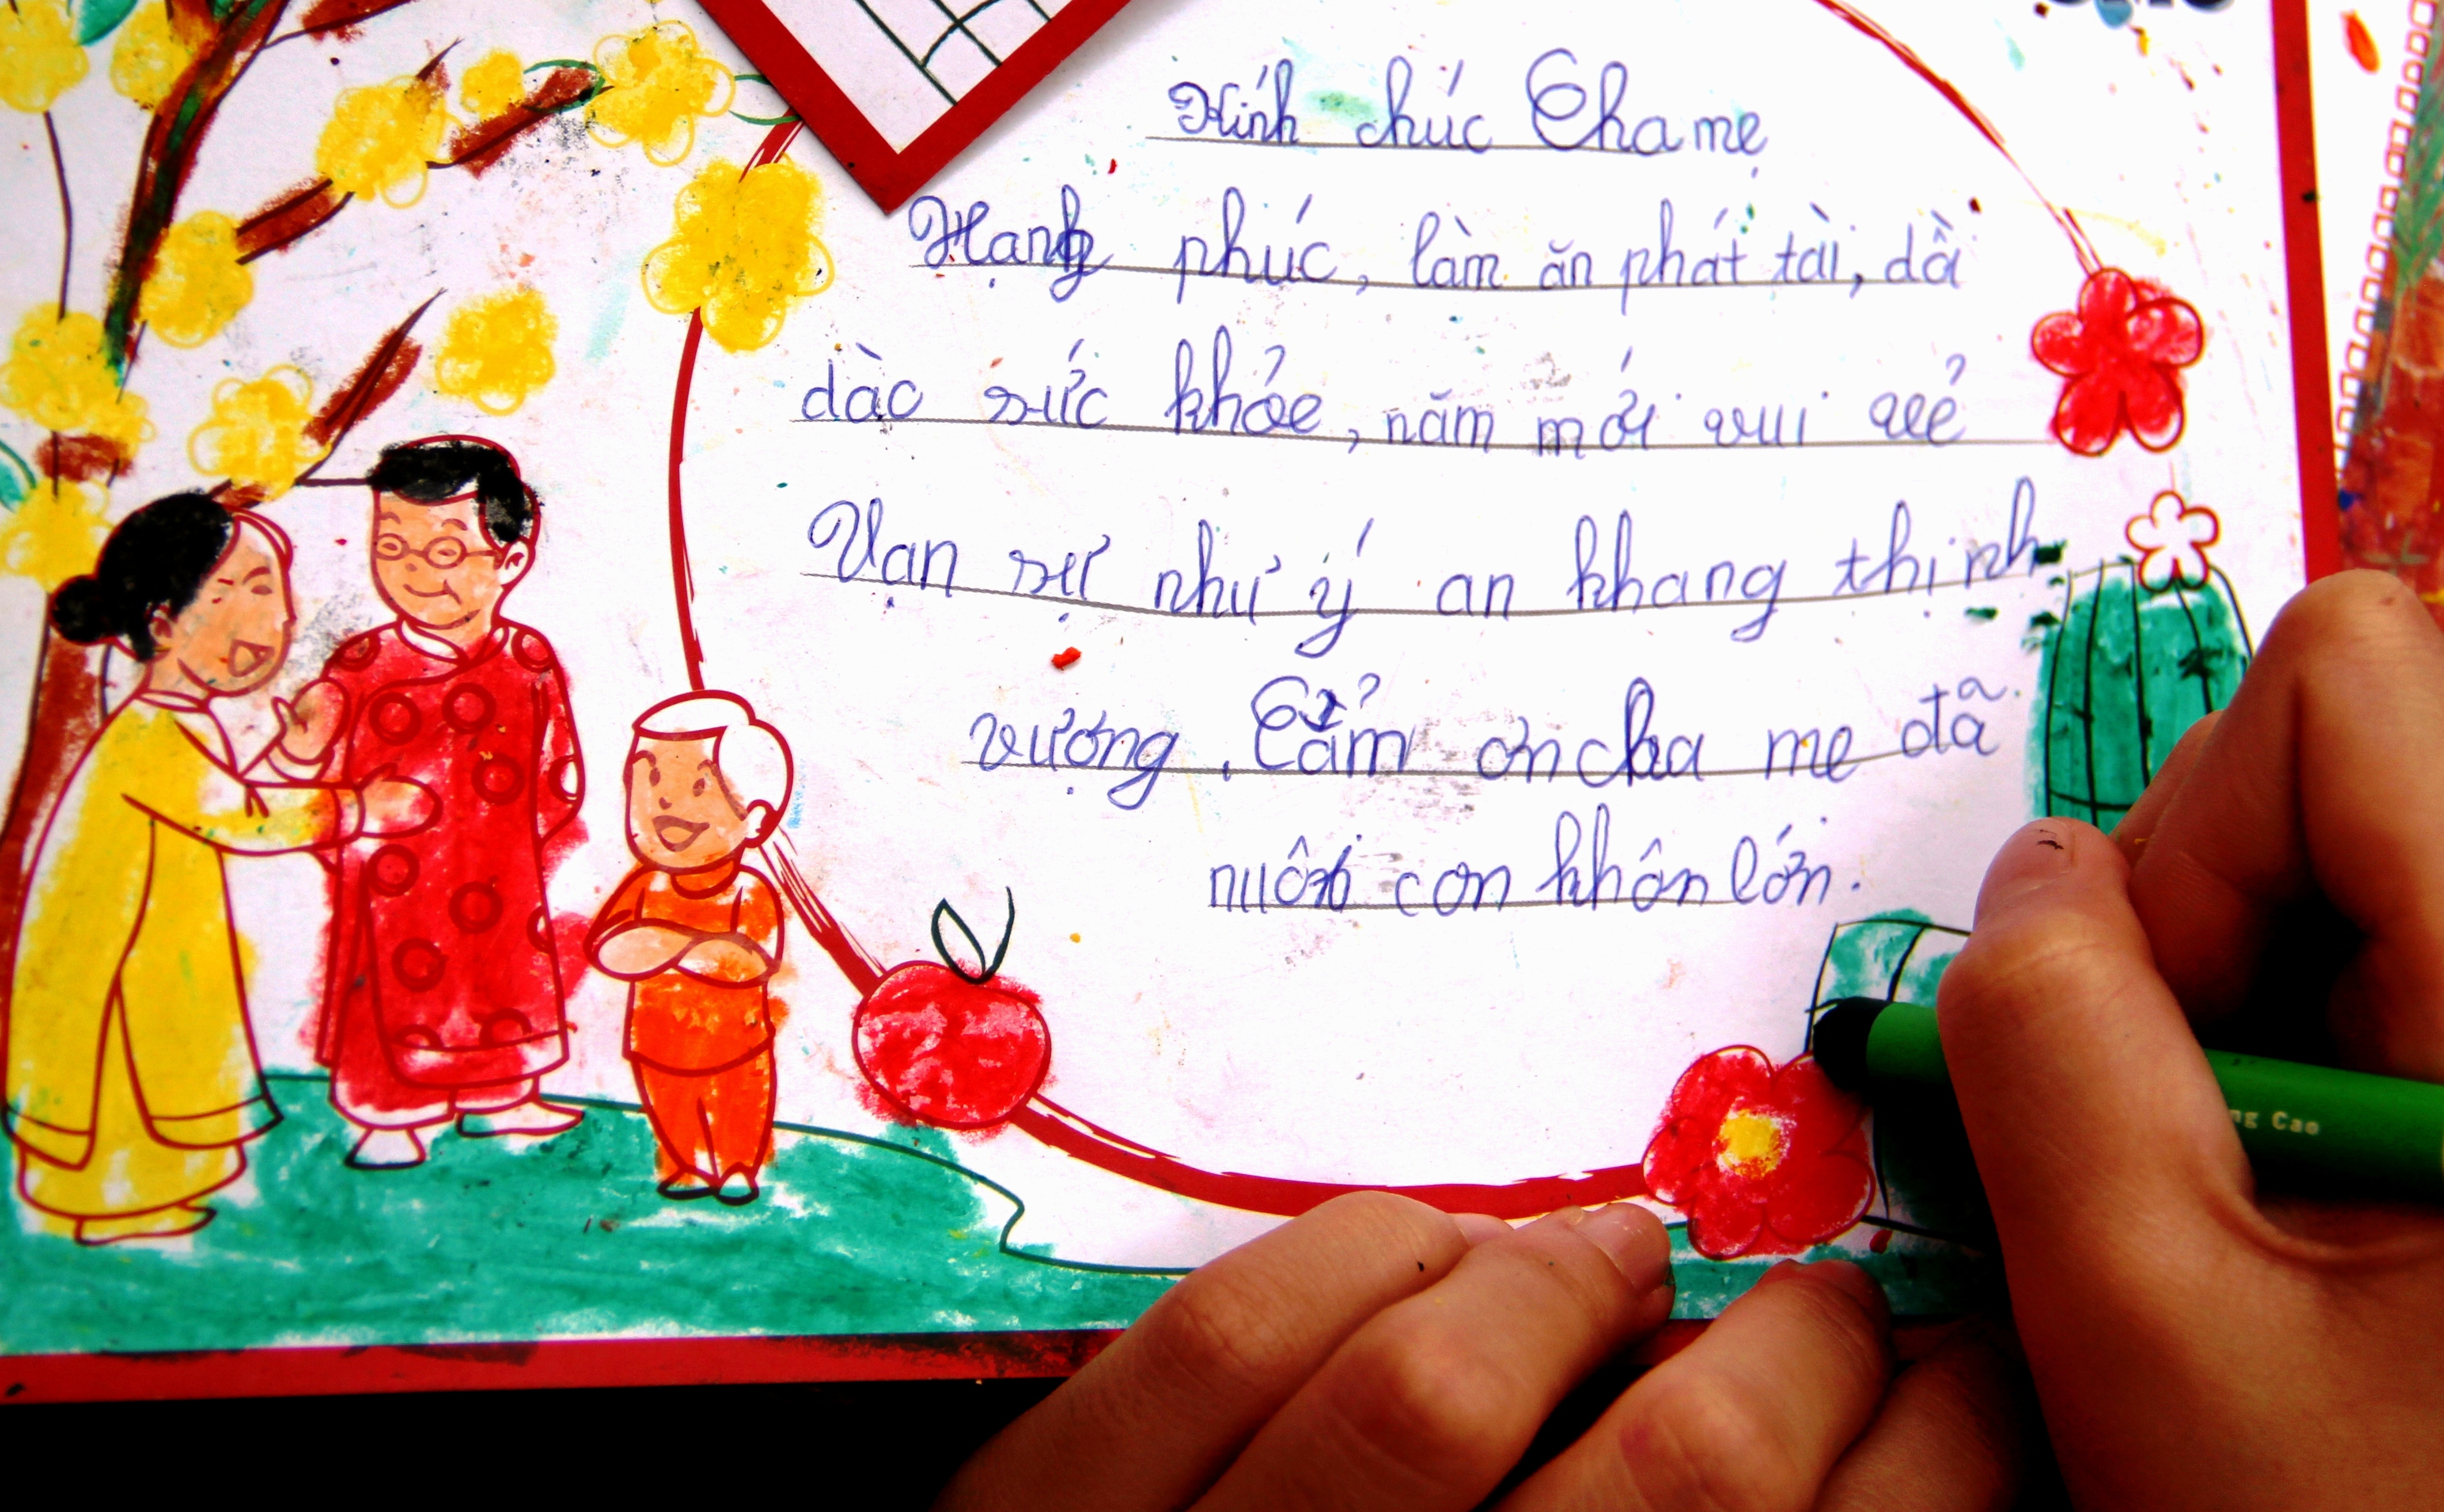 Kính chúc Cha mẹ
Hạnh phúc, làm ăn phát tài, dồi
dào sức khỏe, năm mới vui vẻ
Vạn sự như ý an khang thịnh
vượng. Cảm ơn cha mẹ đã
nuôi con khôn lớn.
ng Cao